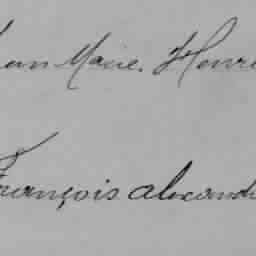 Jean Marie. Henri
François alexandr